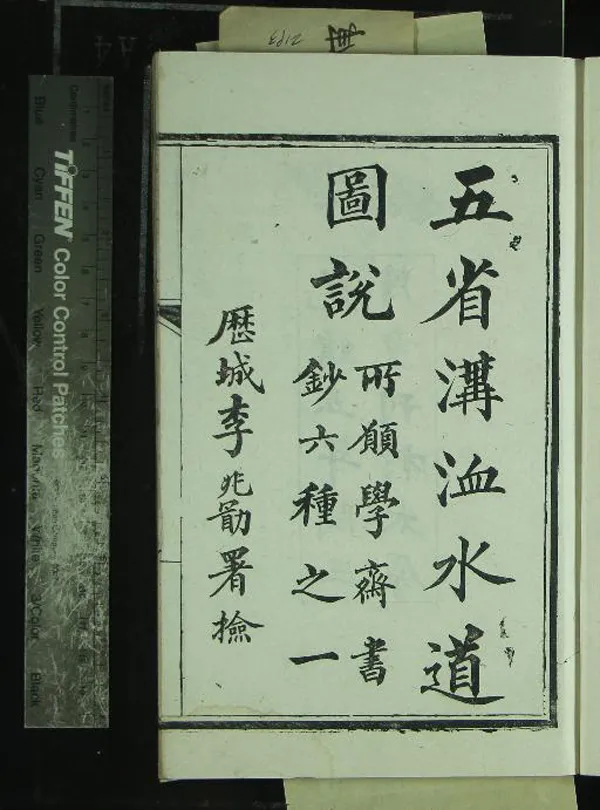 五省溝洫水道
圖說
所願學齋書
鈔六種之一
歷城李兆勖署檢
TIFFEN Color Control Patches
Centimetres
Blue
Cyan
Green
Yellow
Red
Magenta
White
3/Color
Black
2193